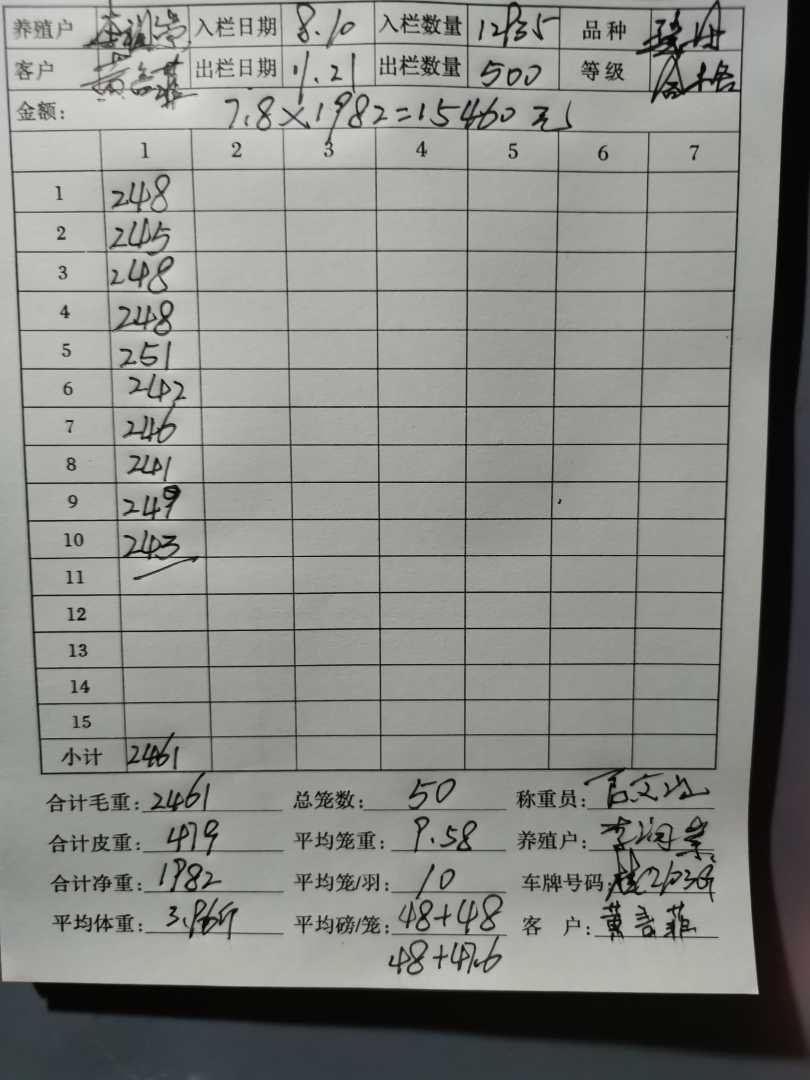 养殖户 李润崇 入栏日期 8.10 入栏数量 12935 品种
客户 黄言菲 出栏日期 11.21 出栏数量 500 等级 合格
金额: 7.8×1982=15460元
1 2 3 4 5 6 7
1 248
2 245
3 248
4 248
5 251
6 242
7 246
8 241
9 249
10 243
11
12
13
14
15
小计 2461
合计毛重: 2461 总笼数: 50 称重员:
合计皮重: 479 平均笼重: 9.58 养殖户: 李润崇
合计净重: 1982 平均笼/羽: 10 车牌号码:
平均体重: 3.96斤 平均磅/笼: 48+48 客 户: 黄言菲
48+47.6